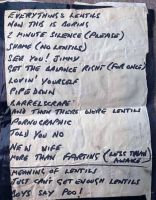 EVERYTHING & LENTILS
NOW THIS IS BORING
2 MINUTE SILENCE (PLEASE)
SHAME (NO LENTILS)
SEE YOU! JIMMY
GET THE BALANCE RIGHT (FOR ONCE)
LOVIN' YOURSELF
PIPE DOWN
BARRELSCRAPE
AND THEN THERE WERE LENTILS
PORNOGRAPHIC
TOLD YOU NO
NEW WIFE
MORE THAN FARTING (LESS THAN AWAKE)
MEANING OF LENTILS
JUST CAN'T GET ENOUGH LENTILS
BOYS SAY POO!